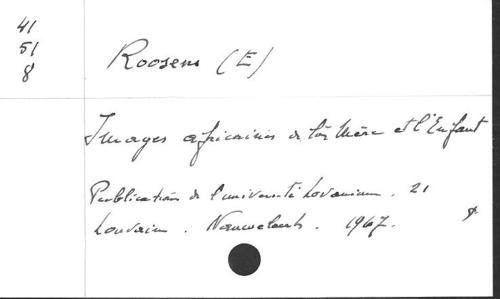 41
51
8
Roosens (E)
Images africaines de la Mère et l'Enfant
Publications de l'université Lovanium. 21
Louvain. Nauwelaerts. 1967.